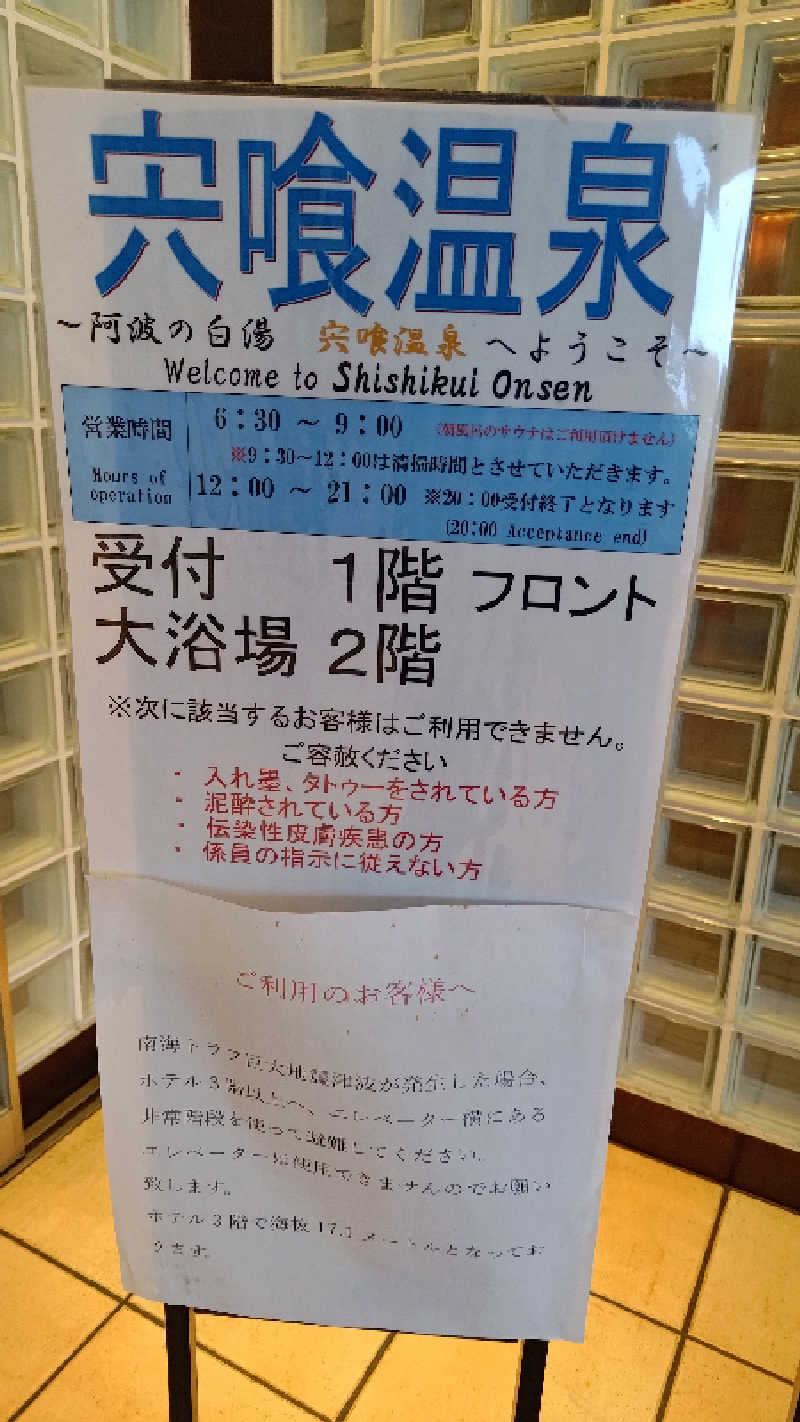 宍喰温泉
～阿波の白湯 宍喰温泉 へようこそ～
Welcome to Shishikui Onsen
営業時間 6：30 ～ 9：00 (朝風呂のサウナはご利用頂けません)
※9：30～12：00は清掃時間とさせていただきます。
Hours of operation 12：00 ～ 21：00 ※20：00受付終了となります
(20:00 Acceptance end)
受付 1階 フロント
大浴場 2階
※次に該当するお客様はご利用できません。
ご容赦ください
・ 入れ墨、タトゥーをされている方
・ 泥酔されている方
・ 伝染性皮膚疾患の方
・ 係員の指示に従えない方
ご利用のお客様へ
南海トラフ巨大地震津波が発生した場合、
ホテル3階以上へ、エレベーター横にある
非常階段を使って避難してください。
エレベーターは使用できませんのでお願い
致します。
ホテル3階で海抜17.1メートルとなってお
ります。